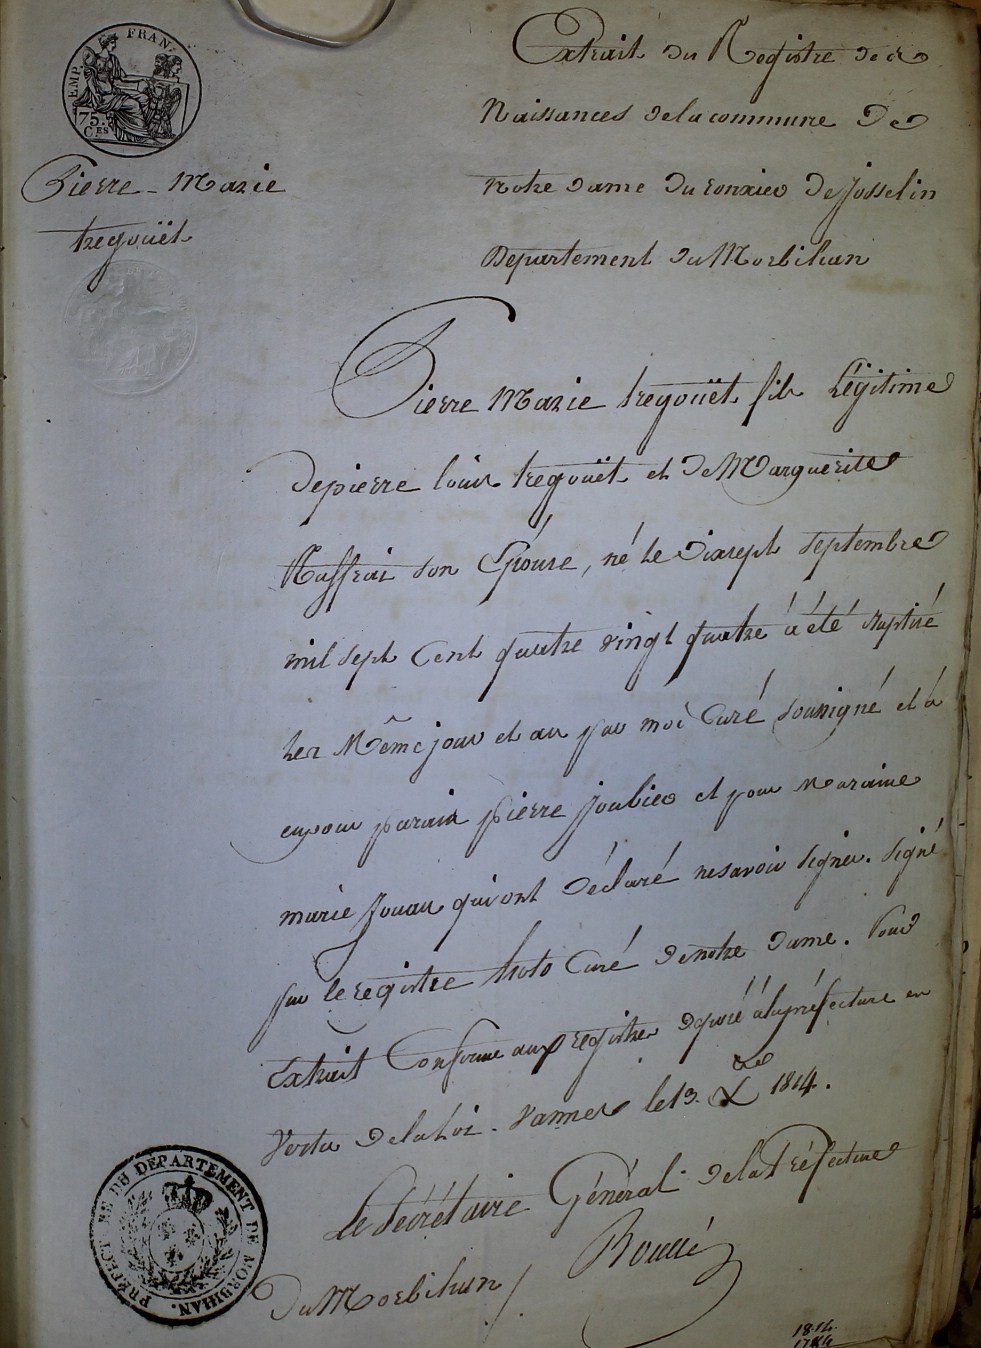 EMP. FRAN.
75.
CES
Pierre - Marie
tregouët
Extrait du Registre des
Naissances de la commune de
Notre dame du ronxier de Josselin
Departement du Morbihan
Pierre Marie tregouët fils Légitime
de pierre louis tregouët et de Marguerite
son Epouse, né le dixsept septembre
mil sept Cent quatre vingt quatre á été Baptisé
les Même jour et an par moi Curé soussigné et à
eu pour parain pierre Joubier et pour Maraine
marie Jouan qui ont déclaré ne savoir signer. Signé
sur le registre Curé de notre dame. Pour
Extrait Conforme aux registres déposé á la préfecture en
Vertu de la Loi. Vannes le 13. Xbre 1814.
Le Sécrétaire Général de la Préfecture
Du Morbihan /
PREFECTURE DU DEPARTEMENT DE MORBIHAN.
1814
1784